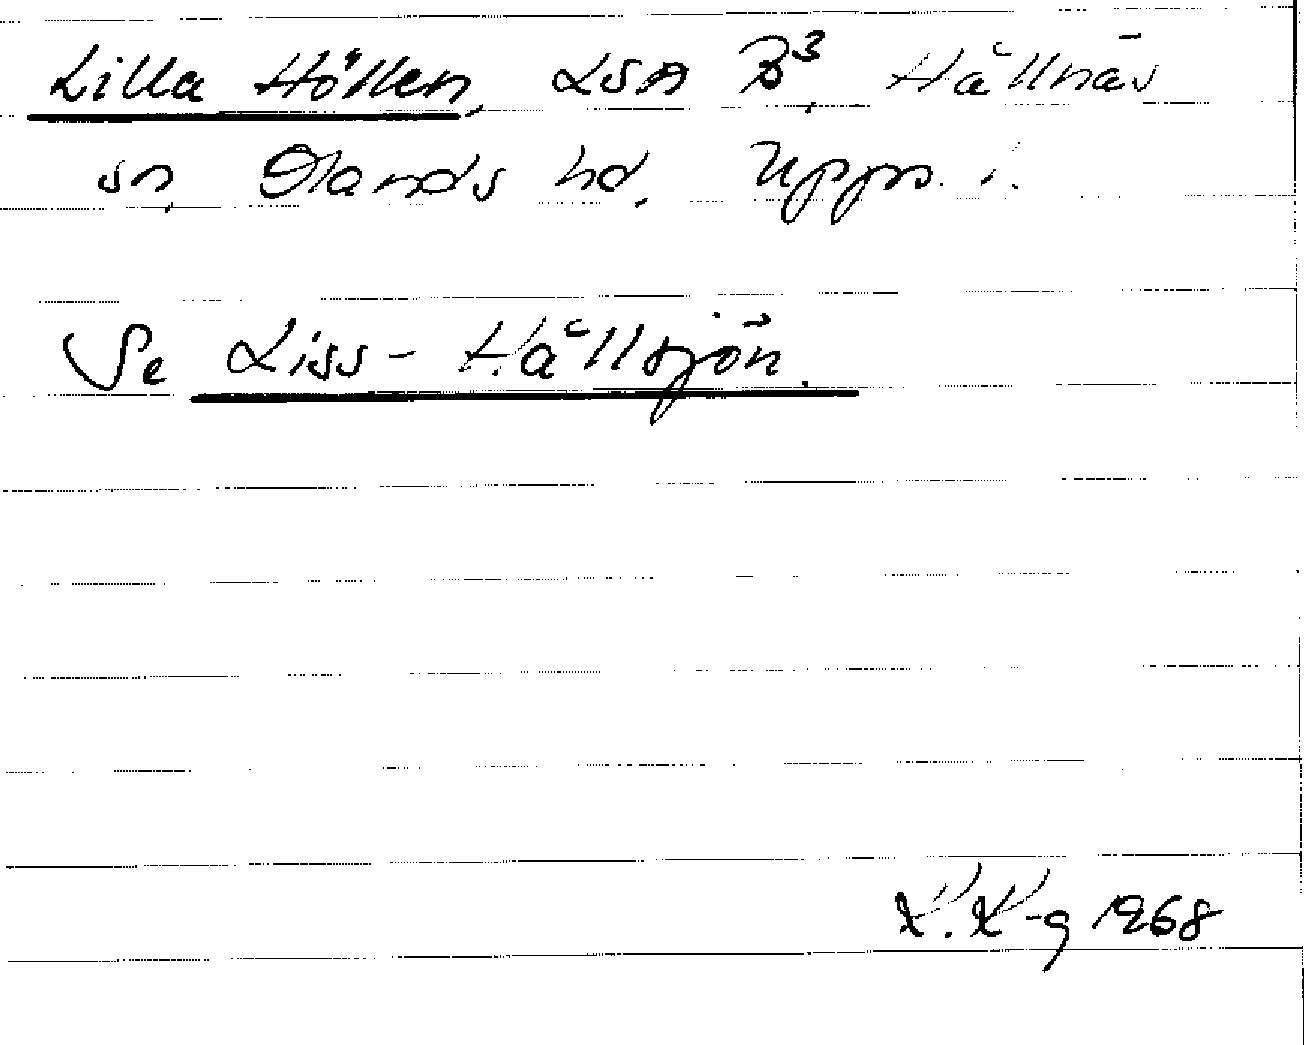 Lilla Höllen, LSA B³, Hållnäs
sn, Olands hd, Upps. l.
Se Liss-Hållsjön.
K. K-g 1968